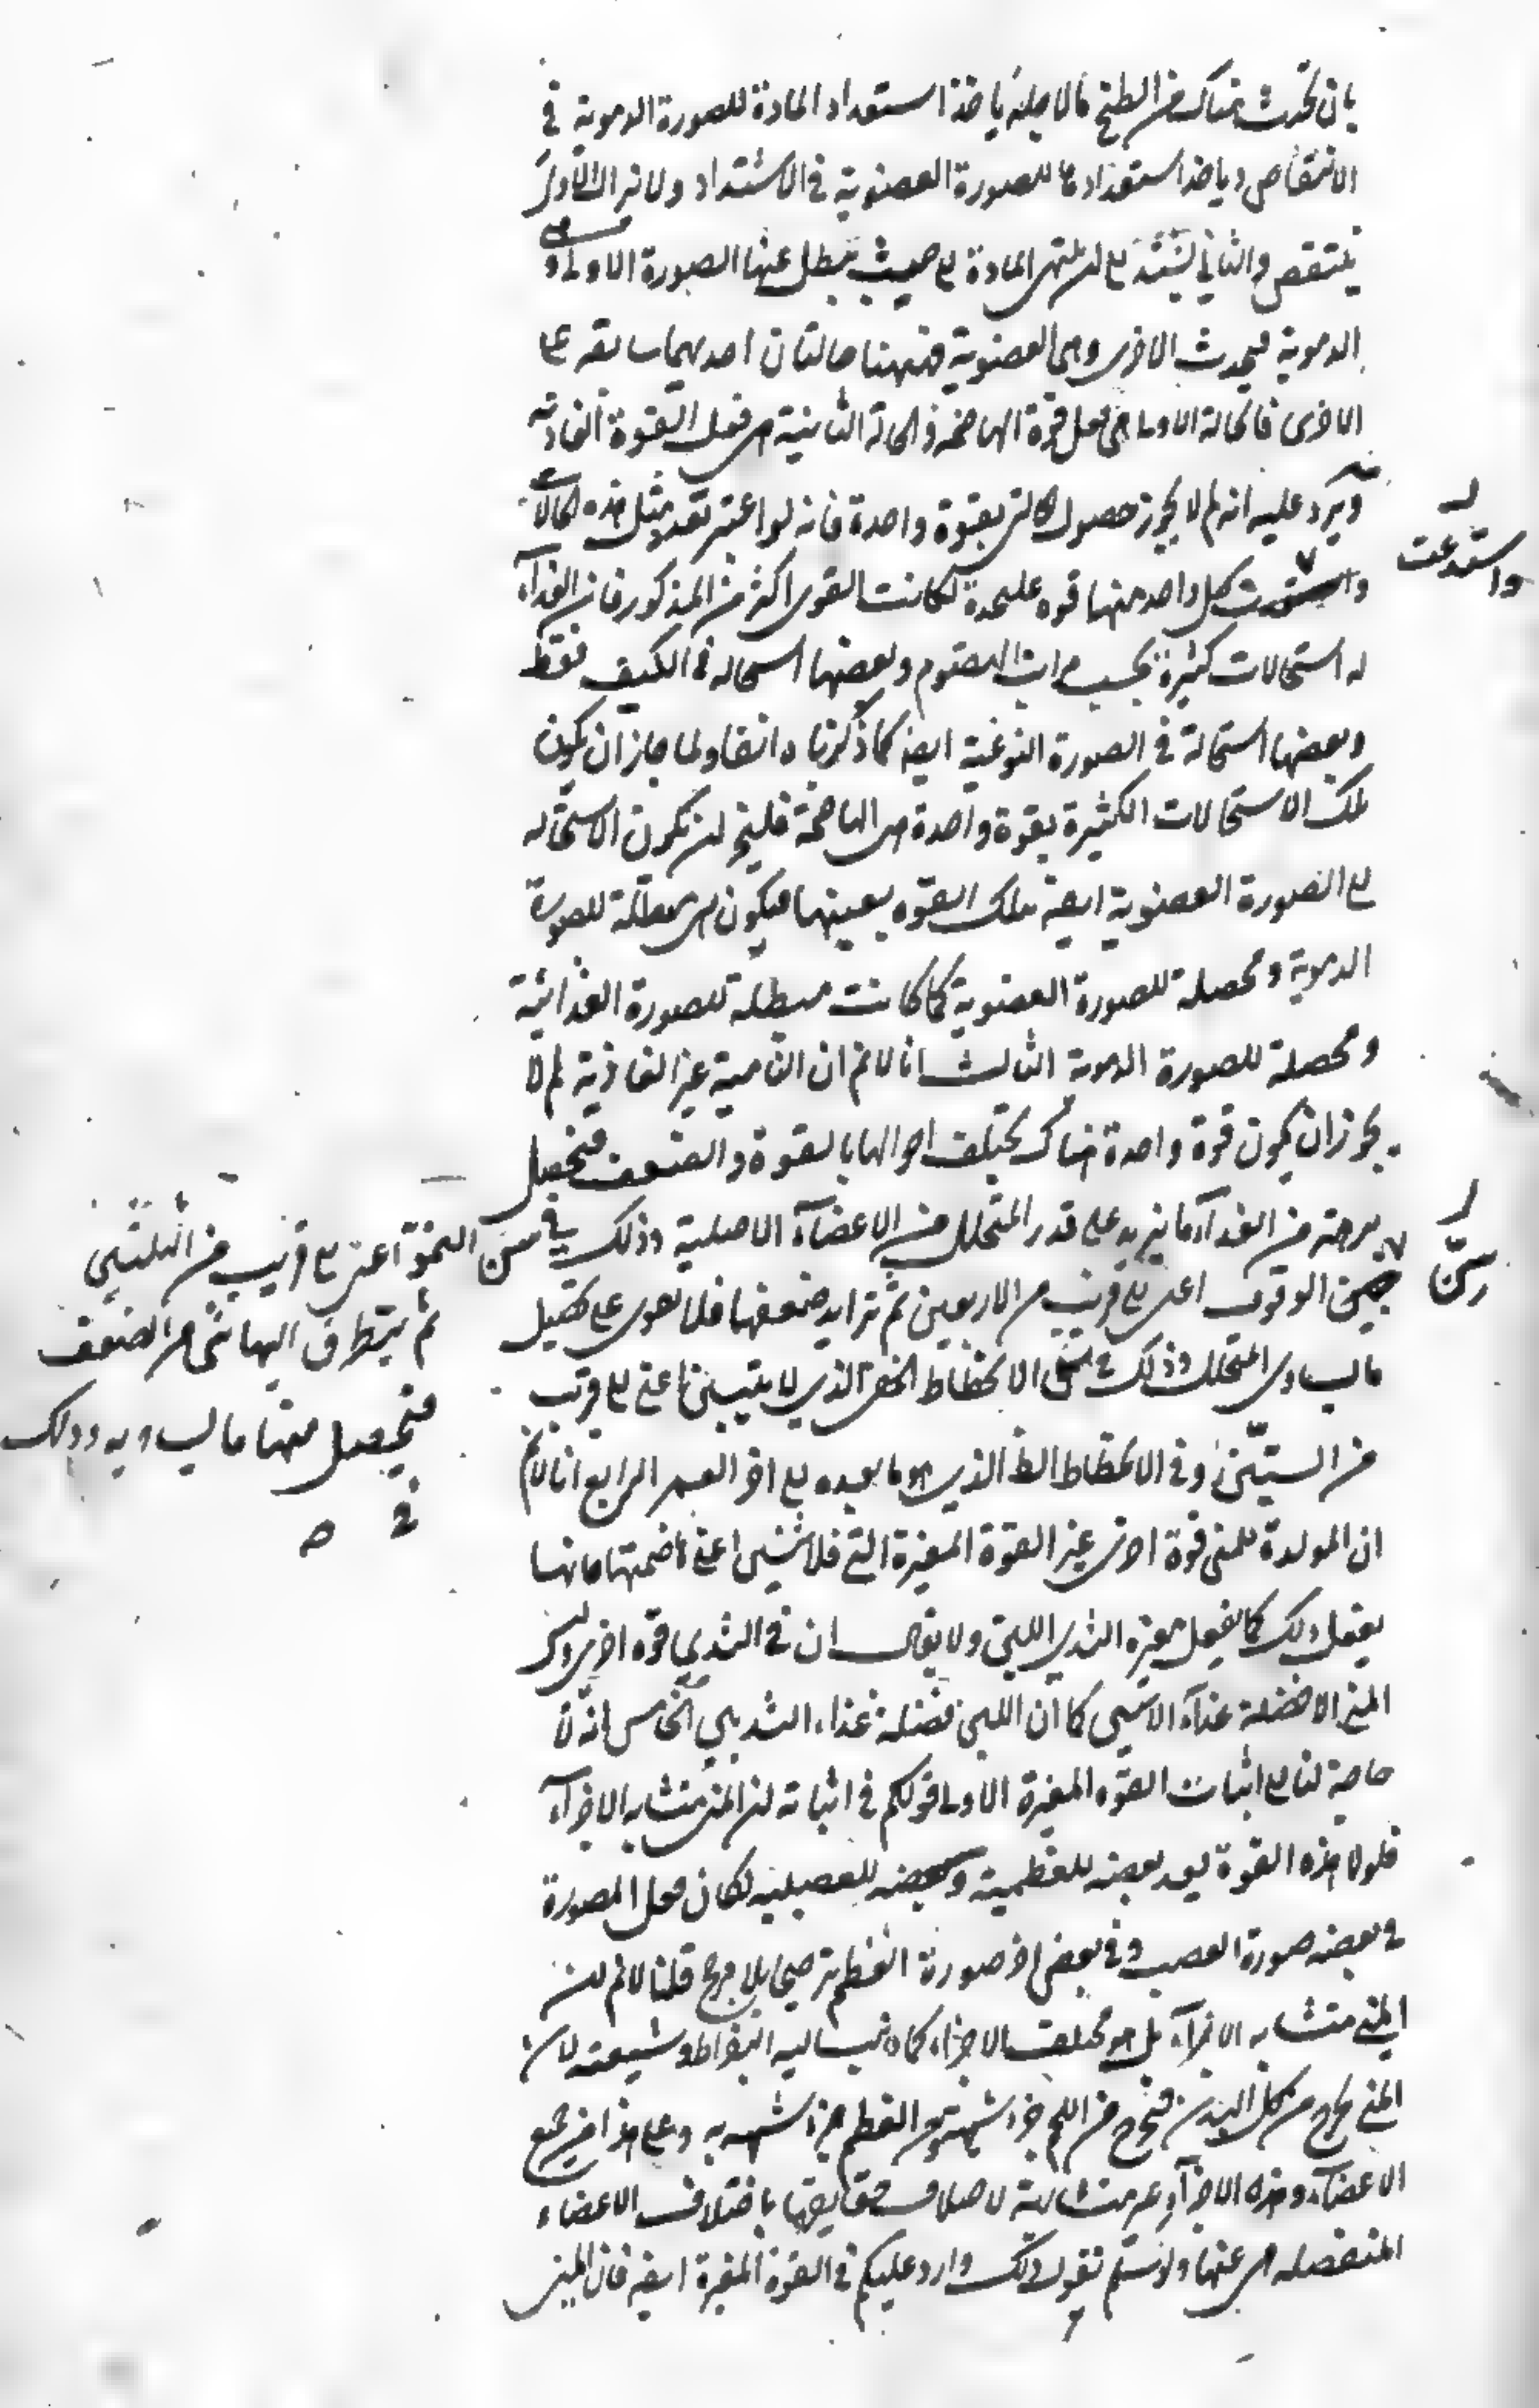 بان تحدث هناك من الطبخ ما لاجله ياخذ استعداد المادة للصورة الدموية في
الانتقاص وياخذ استعدادها للصورة العضوية في الاشتداد ولا يزال الاول
ينتقص والثاني يشتد الى ان ينتهي المادة الى حيث تبطل عنها الصورة الاولى وهي
الدموية فيحدث الاخرى وهي العضوية فههنا حالتان احديهما سابقة على
الاخرى فالحالة الاولى هي فعل قوة الهاضمة والحالة الثانية هي فعل القوة الغاذية
ويرد عليه انه لم لا يجوز حصول بقوة واحدة فانه لو اعتبر تعدد مثل هذه الحالات
واستدعت
كل واحد منها قوة عليحدة لكانت القوى اكثر من المذكور فان الغذاء
له استحالات كثيرة بحسب مراتب الهضوم وبعضها استحالة في الكيف فقط
وبعضها استحالة في الصورة النوعية ايضا كما ذكرناه انفا ولما جاز ان يكون
تلك الاستحالات الكثيرة بقوة واحدة هي الهاضمة فليجز ان تكون الاستحالة
الى الصورة العضوية ايضا بتلك القوة بعينها فيكون هي مبطلة للصورة
الدموية ومحصلة للصورة العضوية كما كانت مبطلة للصورة الغذائية
ومحصلة للصورة الدموية الثالث انا لا نم ان النامية غير الغاذية لم لا
يجوز ان يكون قوة واحدة هناك يختلف احوالها بالقوة والضعف فتحصل
من الغذاء ما يزيد على قدر المتحلل من الاعضاء الاصلية وذلك في سن النمو اعني الى قريب من الثلثين
ثم يتطرق اليها شئ من الضعف
فتحصل منها ما يساويه وذلك
في
سن
الوقوف اعني الى قريب من الاربعين ثم تزايد ضعفها فلا تقوى على تحصيل
ما يساوي المتحلل وذلك في سن الانحطاط الخفي الذي لا يتبين اعني الى قريب
من الستين وفي الانحطاط الظ الذي هو ما بعده الى اخر العمر الرابع انا لا نم
ان المولدة للمني قوة اخرى غير القوة المغيرة التي للانثيين اعني هاضمتها فانها
يفعل ذلك كما يفعل مغيرة الثدي اللبن ولا يقال ان في الثدي قوة اخرى وليس
المني الا فضلة غذاء الانثيين كما ان اللبن فضلة غذاء الثديين الخامس انه لا
حاجة لنا الى اثبات القوة المغيرة الاولى قولكم في اثباته ان المني متشابه الاجزاء
فلولا هذه القوة يعد بعضه للعظمية وبعضه للعصبية لكان فعل المصورة
في بعضه صورة العصب وفي بعض اخر صورة العظم ترجيحا بلا مرجح قلنا لا نم ان
المني متشابه الاجزاء بل هو مختلف الاجزاء كما ذهب اليه البقراط وشيعته لان
المني يخرج من كل البدن فيخرج من اللحم جزء شبيه به ومن العظم جزء شبيه به وعلى هذا من جميع
الاعضاء وهذه الاجزاء غير متشابهة لاختلاف حقايقها باختلاف الاعضاء
المنفصلة هي عنها ولو سلم نقول ذلك وارد عليكم في القوة المغيرة ايضا فان المني